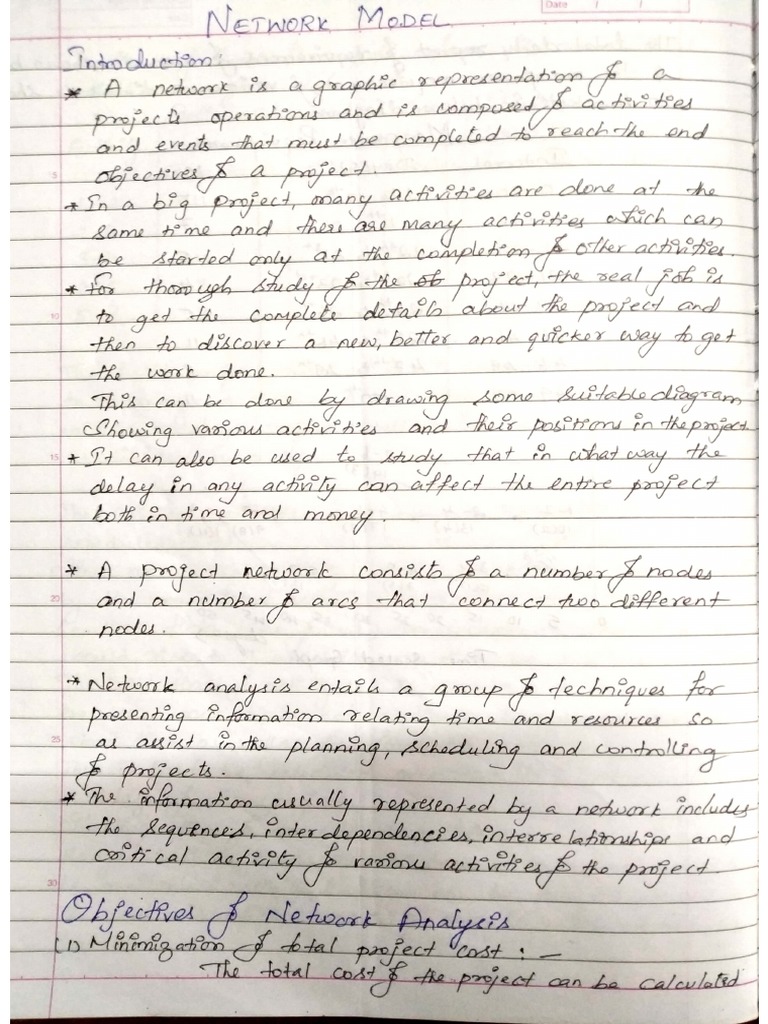 Date / /
NETWORK MODEL
Introduction:
* A network is a graphic representation of a
project's operations and is composed of activities
and events that must be completed to reach the end
objectives of a project.
* In a big project, many activities are done at the
same time and there are many activities which can
be started only at the completion of other activities.
* For thorough study of the of project, the real job is
to get the complete details about the project and
then to discover a new, better and quicker way to get
the work done.
This can be done by drawing some suitable diagram
showing various activities and their positions in the project
* It can also be used to study that in what way the
delay in any activity can affect the entire project
both in time and money.
* A project network consists of a number of nodes
and a number of arcs that connect two different
nodes.
* Network analysis entails a group of techniques for
presenting information relating time and resources so
as assist in the planning, scheduling and controlling
of projects.
* The information usually represented by a network includes
the sequences, interdependencies, interrelationships and
critical activity of various activities of the project.
Objectives of Network Analysis
(1) Minimization of total project cost : -
The total cost of the project can be calculated